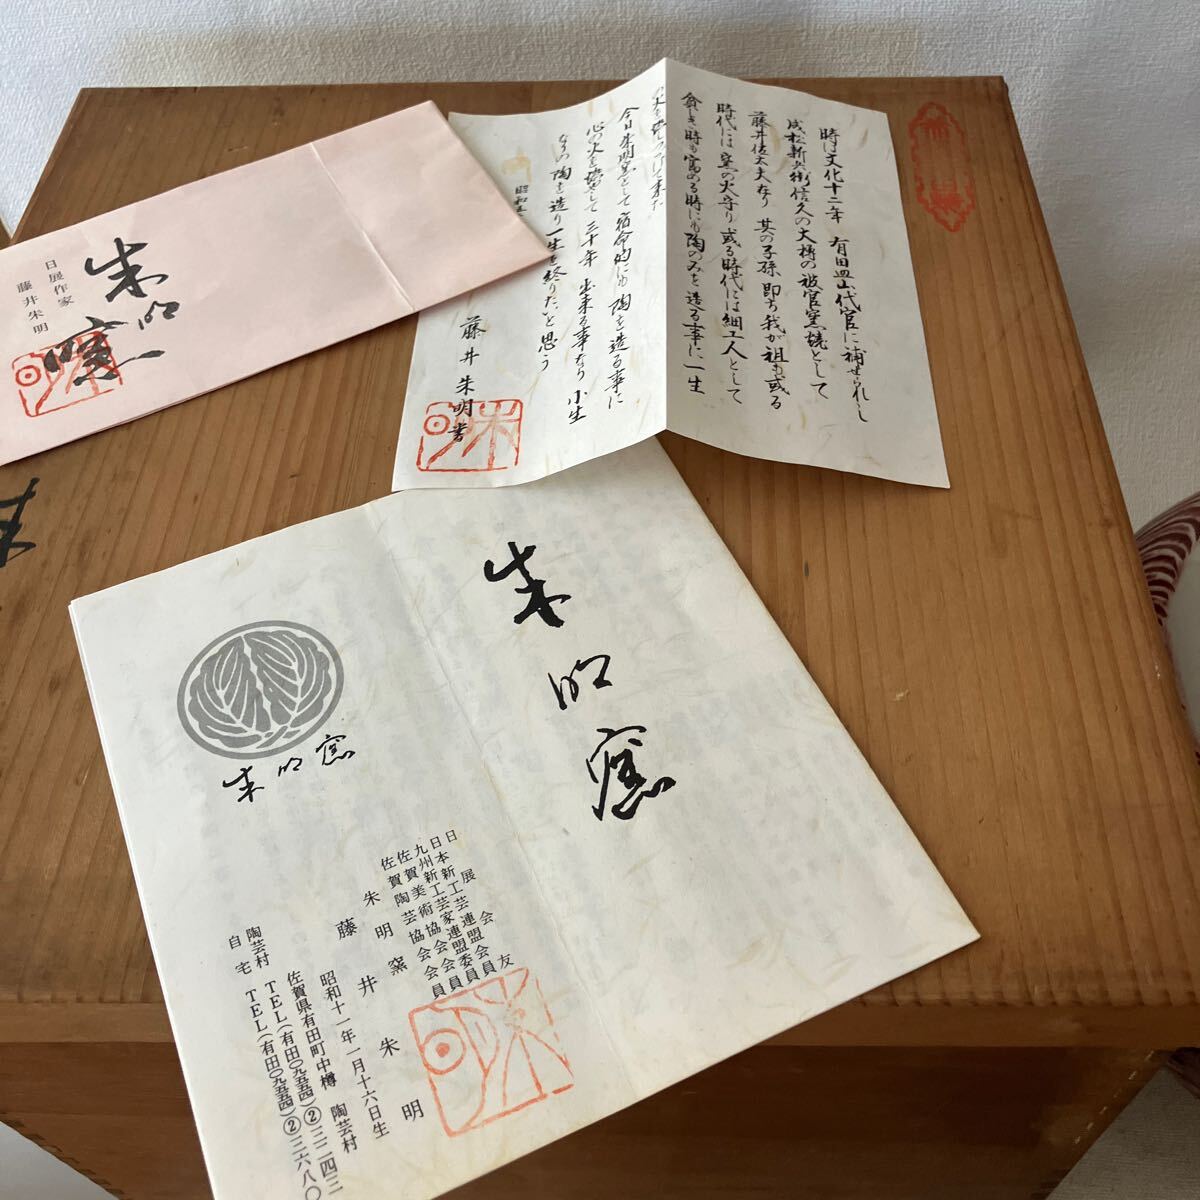 朱明窯
日展作家
藤井朱明
時は文化十二年 有田皿山代官に補せられし
成松新兵衛信久の大樽の被官窯焼として
藤井佐太夫なり 其の子孫即ち我が祖も或る
時代には窯の火守り或る時代には細工人として
貧しき時も富める時にも陶のみを造る事に一生
の火を燃しつけて来た
今日朱明窯として宿命的にも陶を造る事に
心の火を燃して三十年 出来る事なり 小生
なりの陶を造り一生を終りたいと思う
昭和
藤井朱明書
朱明窯
朱明窯
日展会友
日本新工芸連盟会員
九州新工芸家連盟委員
佐賀美術協会会員
佐賀陶芸協会会員
朱明窯
藤井朱明
昭和十一年一月十六日生
佐賀県有田町中樽 陶芸村
陶芸村 TEL(有田〇九五五四)②三二四三
自宅 TEL(有田〇九五五四)②三六八〇
朱